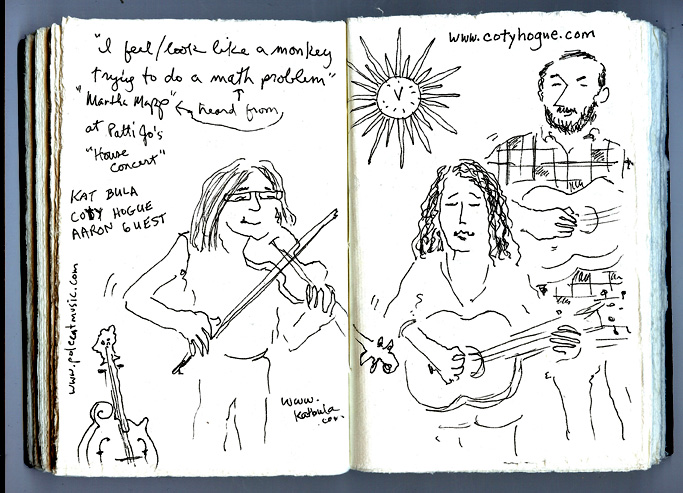 "I feel/look like a monkey
trying to do a math problem"
"Martha
heard from
at Patti Jo's
"House
Concert"
KAT BULA
COTY HOGUE
AARON GUEST
www.polecatmusic.com
www.
katbula
.com
www.cotyhogue.com